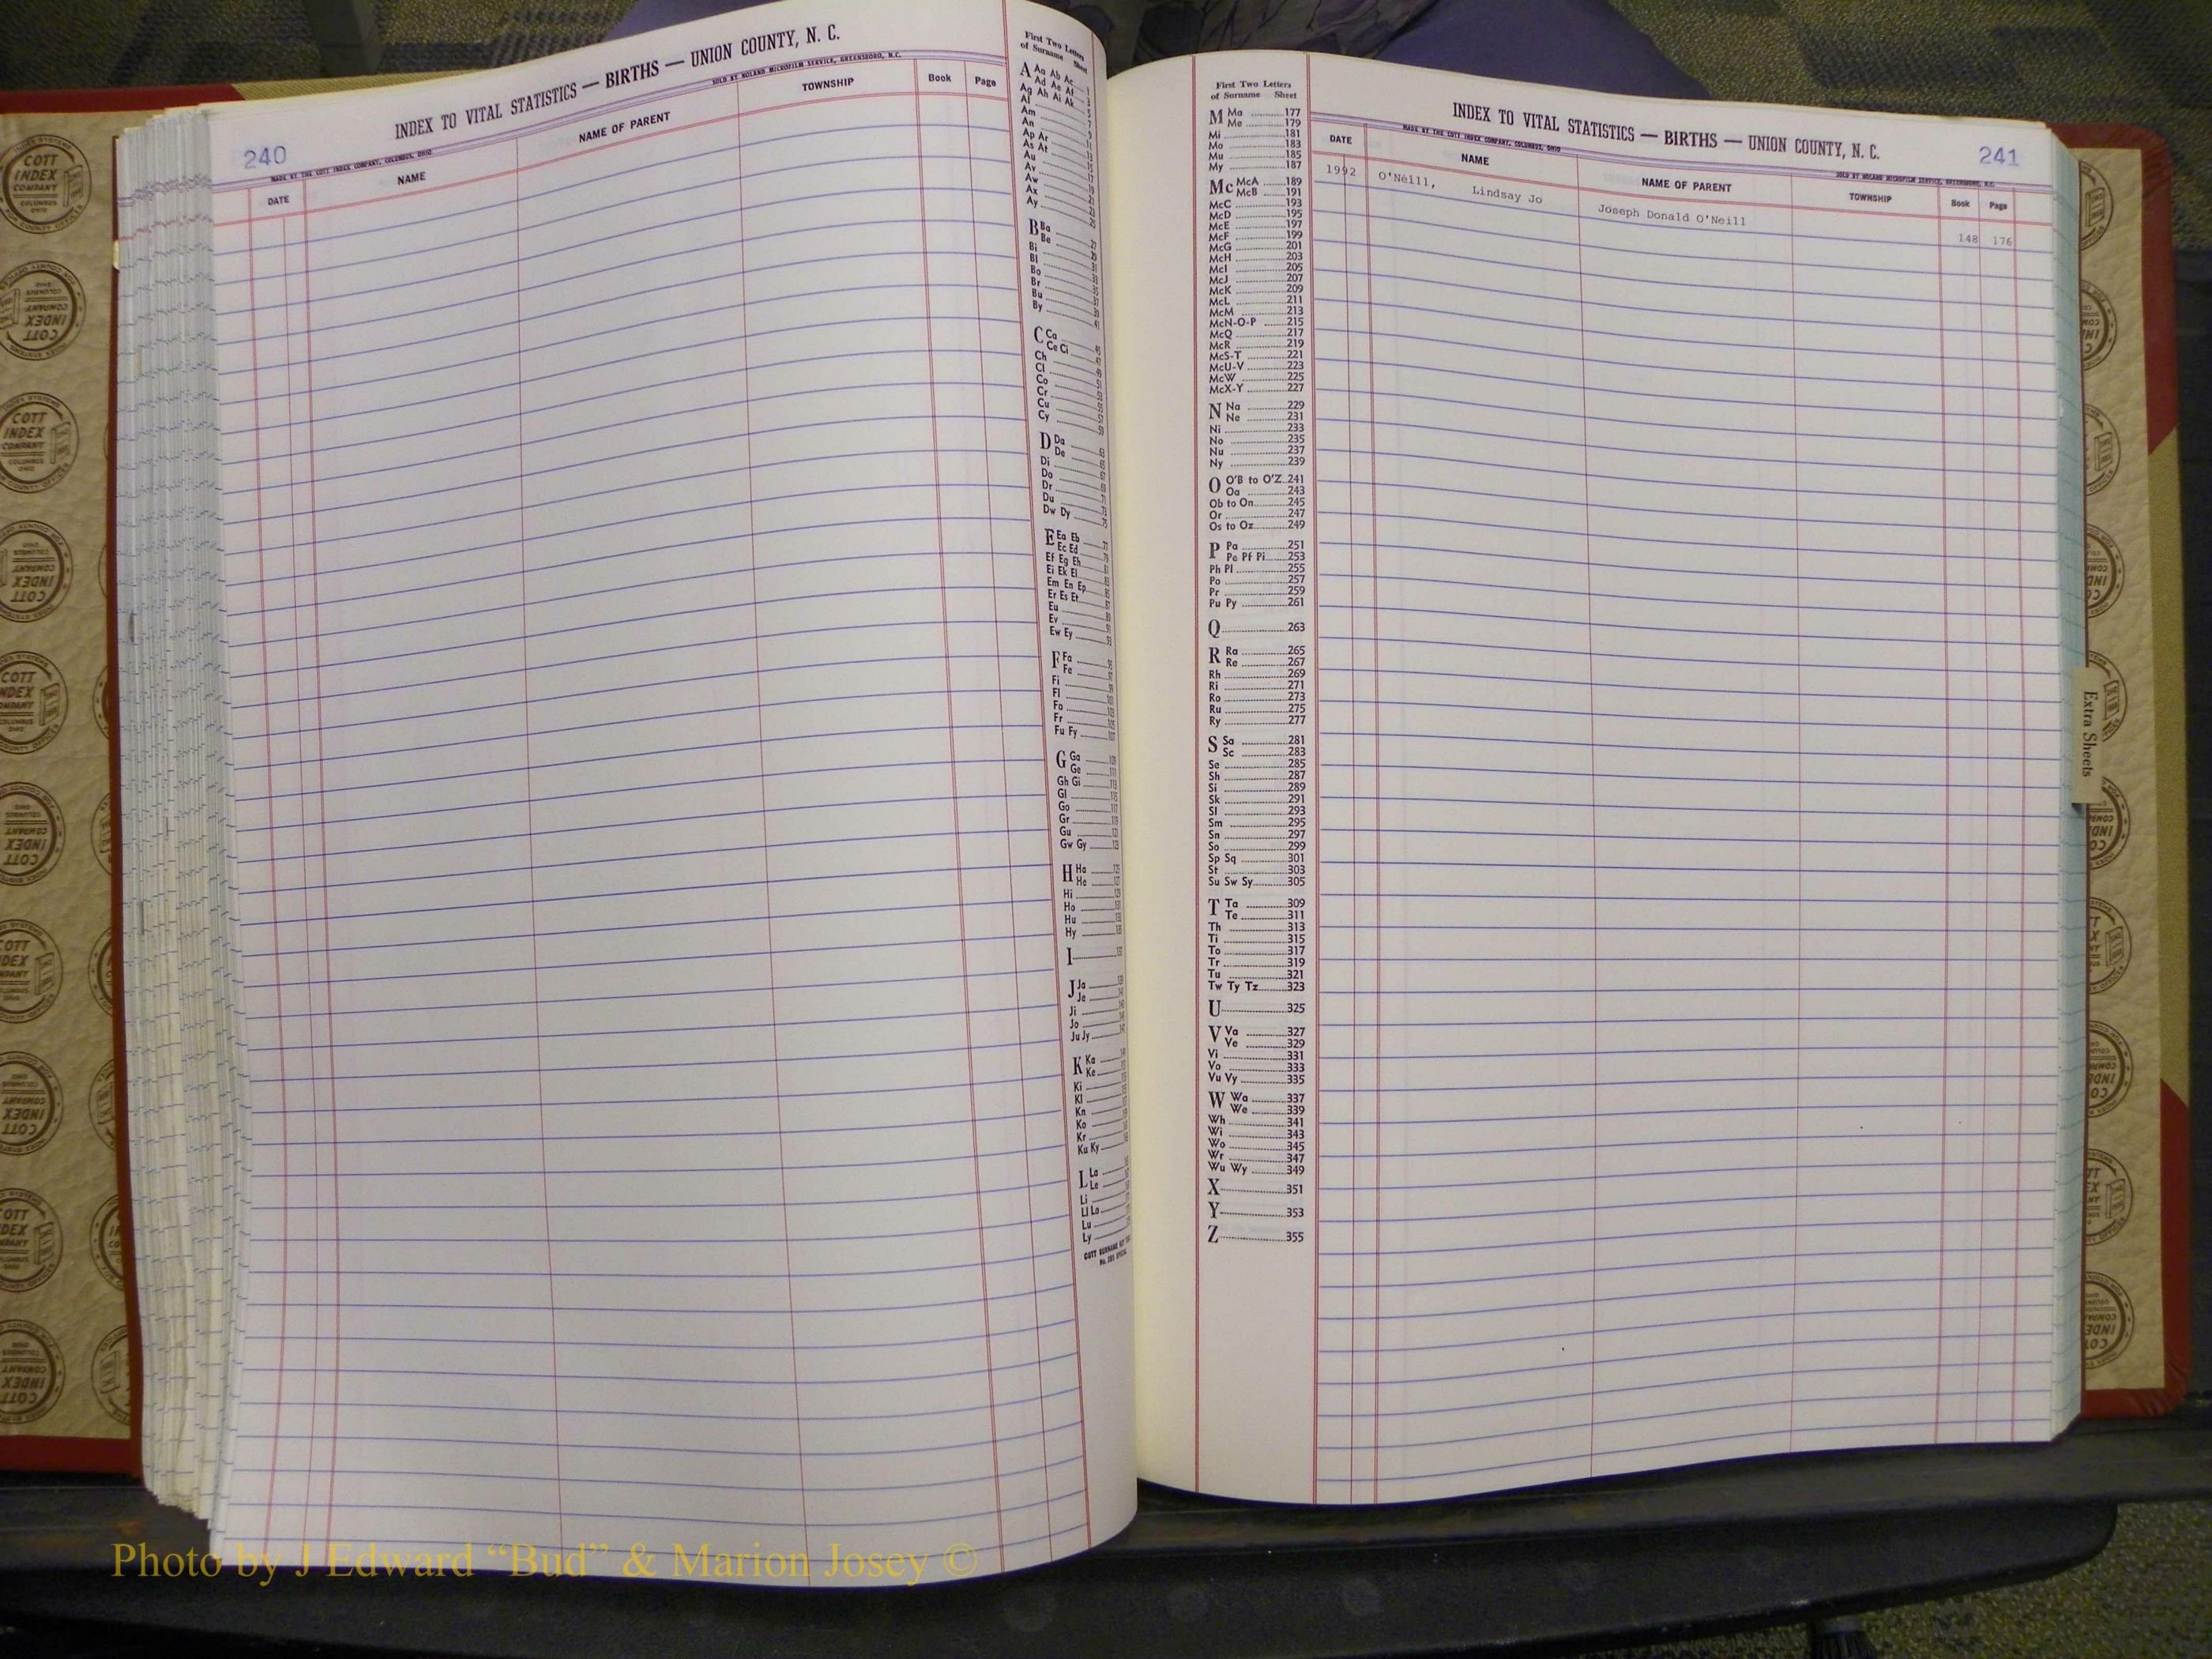 INDEX TO VITAL STATISTICS — BIRTHS — UNION COUNTY, N. C.
240
MADE BY THE COTT INDEX COMPANY, COLUMBUS, OHIO
SOLD BY NOLAND MICROFILM SERVICE, GREENSBORO, N.C.
DATE NAME NAME OF PARENT TOWNSHIP Book Page
First Two Letters
of Surname Sheet
A Aa Ab Ac
Ad Ae Af
Ag Ah Ai Ak
Al
Am
An
Ap Ar
As At
Au
Av
Aw
Ax
Ay
B Ba
Be
Bi
Bl
Bo
Br
Bu
By
C Ca
Ce Ci
Ch
Cl
Co
Cr
Cu
Cy
D Da
De
Di
Do
Dr
Du
Dw Dy
E Ea Eb
Ec Ed
Ef Eg Eh
Ei Ek El
Em En Ep
Er Es Et
Eu
Ev
Ew Ey
F Fa
Fe
Fi
Fl
Fo
Fr
Fu Fy
G Ga
Ge
Gh Gi
Gl
Go
Gr
Gu
Gw Gy
H Ha
He
Hi
Ho
Hu
Hy
I
J Ja
Je
Ji
Jo
Ju Jy
K Ka
Ke
Ki
Kl
Kn
Ko
Kr
Ku Ky
L La
Le
Li
Ll Lo
Lu
Ly
First Two Letters
of Surname Sheet
M Ma 177
Me 179
Mi 181
Mo 183
Mu 185
My 187
Mc McA 189
McB 191
McC 193
McD 195
McE 197
McF 199
McG 201
McH 203
McI 205
McJ 207
McK 209
McL 211
McM 213
McN-O-P 215
McQ 217
McR 219
McS-T 221
McU-V 223
McW 225
McX-Y 227
N Na 229
Ne 231
Ni 233
No 235
Nu 237
Ny 239
O O'B to O'Z 241
Oa 243
Ob to On 245
Or 247
Os to Oz 249
P Pa 251
Pe Pf Pi 253
Ph Pl 255
Po 257
Pr 259
Pu Py 261
Q 263
R Ra 265
Re 267
Rh 269
Ri 271
Ro 273
Ru 275
Ry 277
S Sa 281
Sc 283
Se 285
Sh 287
Si 289
Sk 291
Sl 293
Sm 295
Sn 297
So 299
Sp Sq 301
St 303
Su Sw Sy 305
T Ta 309
Te 311
Th 313
Ti 315
To 317
Tr 319
Tu 321
Tw Ty Tz 323
U 325
V Va 327
Ve 329
Vi 331
Vo 333
Vu Vy 335
W Wa 337
We 339
Wh 341
Wi 343
Wo 345
Wr 347
Wu Wy 349
X 351
Y 353
Z 355
INDEX TO VITAL STATISTICS — BIRTHS — UNION COUNTY, N. C.
241
MADE BY THE COTT INDEX COMPANY, COLUMBUS, OHIO
SOLD BY NOLAND MICROFILM SERVICE, GREENSBORO, N.C.
DATE NAME NAME OF PARENT TOWNSHIP Book Page
1992 O'Neill, Lindsay Jo Joseph Donald O'Neill 148 176
Extra Sheets
COTT
INDEX
COMPANY
COLUMBUS
OHIO
Photo by J Edward “Bud” & Marion Josey ©